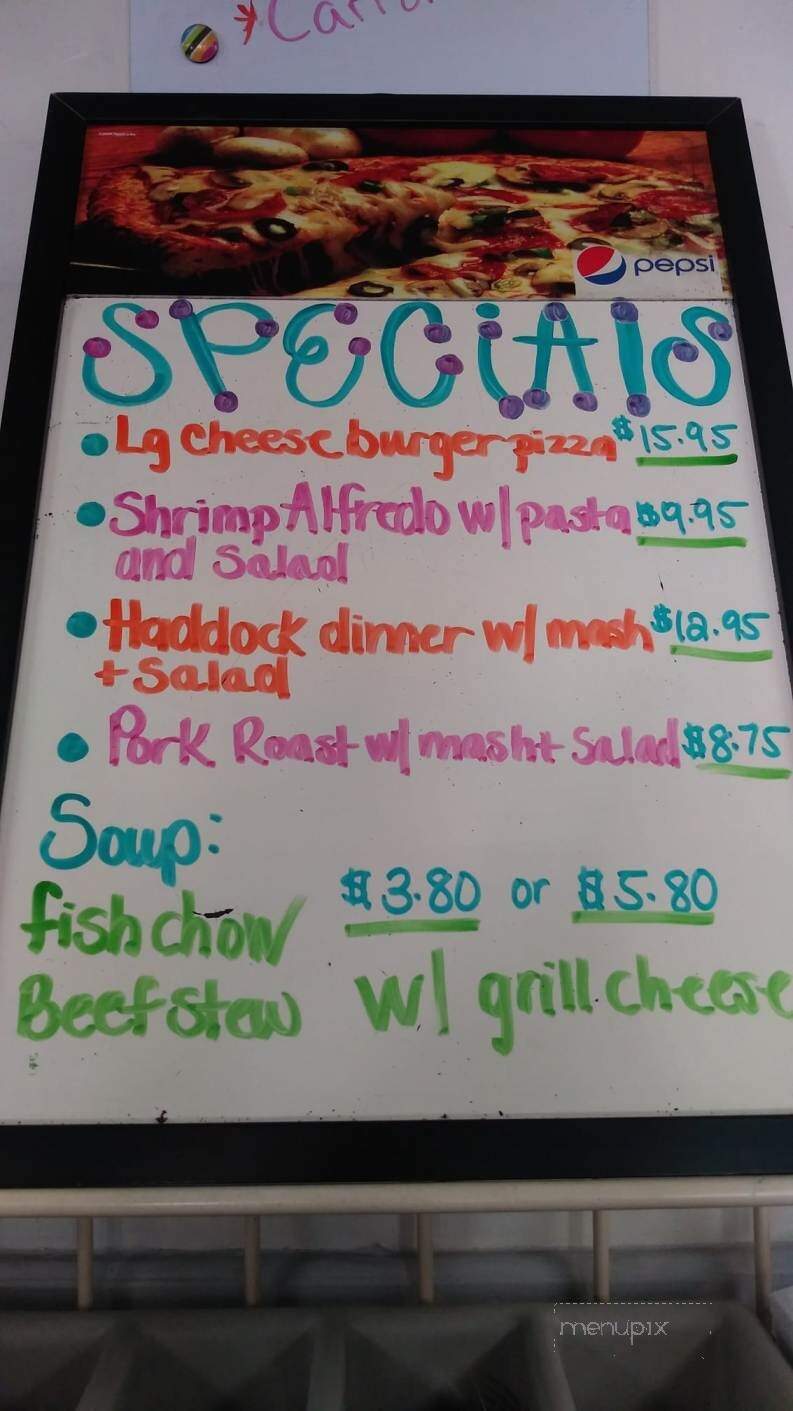 pepsi
SPECiAlS
Lg cheeseburger pizza $15.95
Shrimp Alfredo w/ pasta $9.95
and Salad
Haddock dinner w/ mash $12.95
+ Salad
Pork Roast w/ mash + Salad $8.75
Soup:
fish chow $3.80 or $5.80
Beef stew w/ grill cheese
menupix